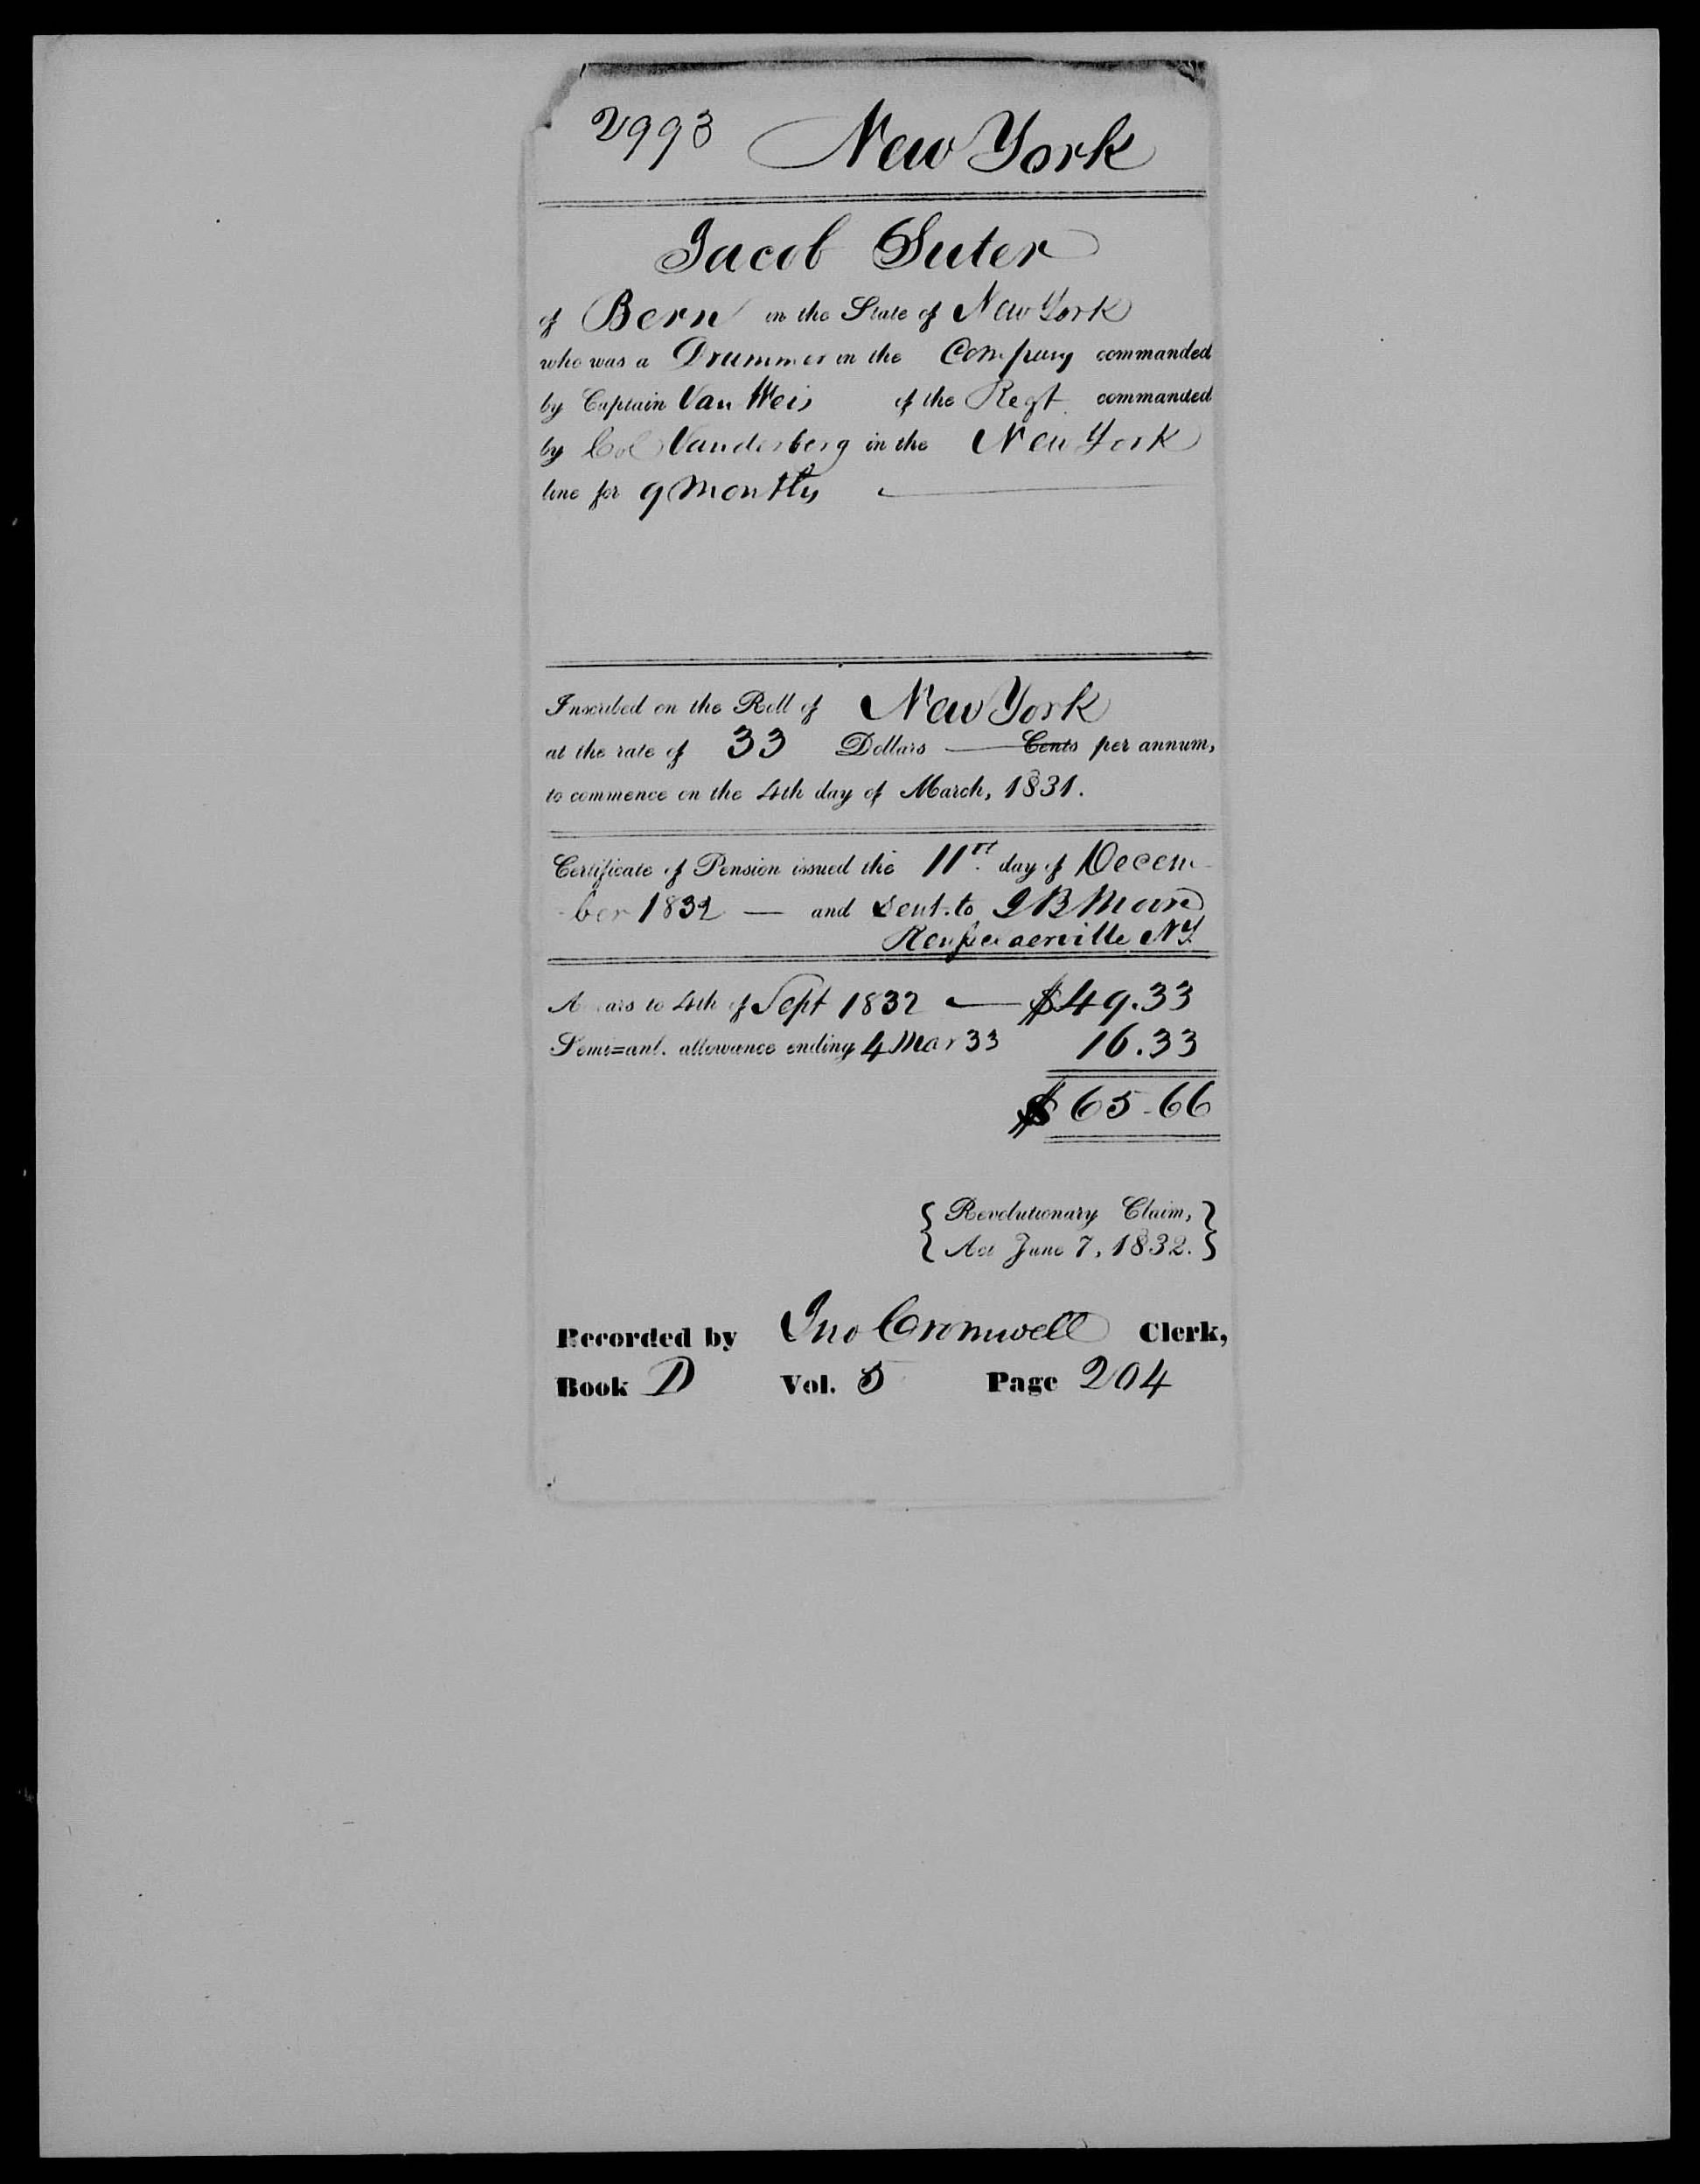 2993 New York
Jacob Suter
of Bern in the State of New York
who was a Drummer in the Company commanded
by Captain Van Weis of the Regt commanded
by Col Vanderberg in the New York
line for 9 Months
Inscribed on the Roll of New York
at the rate of 33 Dollars Cents per annum,
to commence on the 4th day of March, 1831.
Certificate of Pension issued the 11th day of Decem-
-ber 1832 — and Sent to
Rensselaerville NY
Arrears to 4th of Sept 1832 — $49.33
Semi=anl. allowance ending 4 Mar 33 16.33
$65.66
{ Revolutionary Claim, }
{ Act June 7, 1832. }
Recorded by Jno Cromwell Clerk,
Book D Vol. 5 Page 204